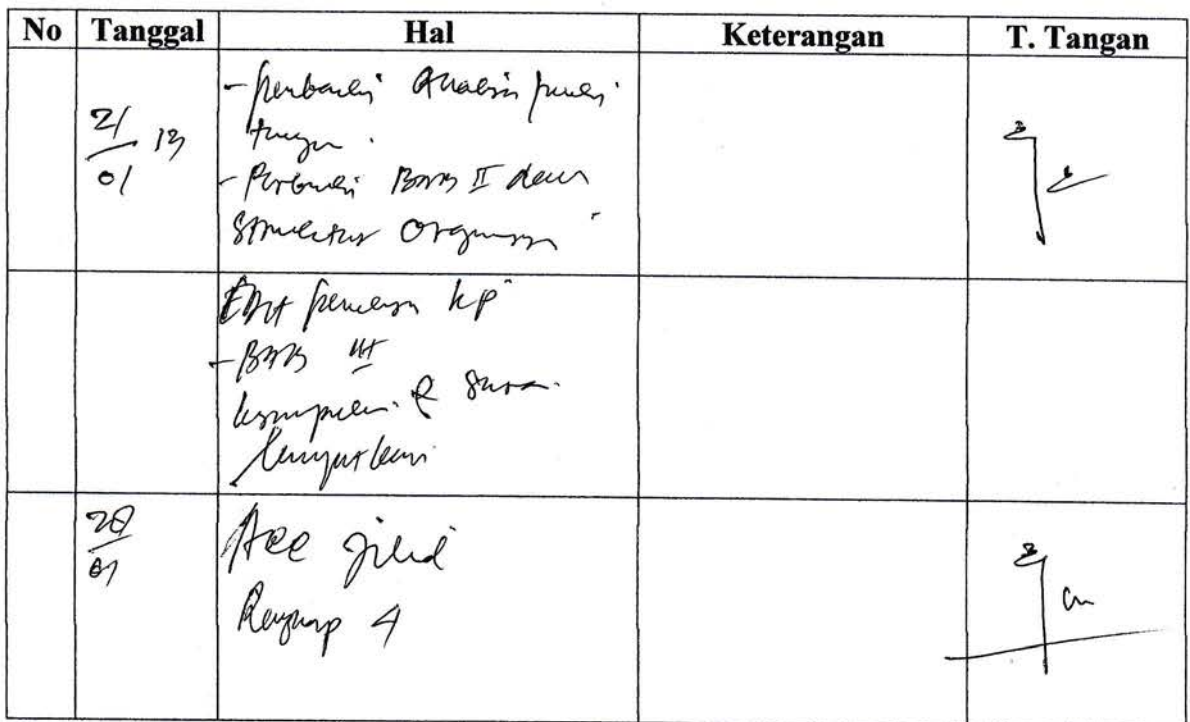 No Tanggal Hal Keterangan T. Tangan
21/01 13
- Perbaiki Analisis
- Perbaiki BAB II dan
Struktur Organisasi
Edit KP
- BAB III
kesimpulan & Saran
Lanjutkan
Acc jilid
Rangkap 4